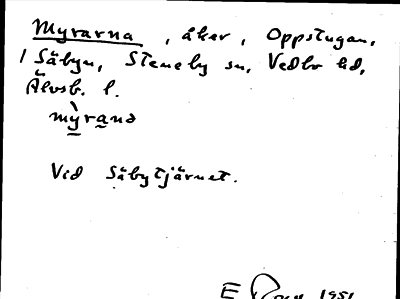 Myrarna, åker, Oppstugan,
1 Säbyn, Steneby sn, Vedbo hd,
Älvsb. l.
mỳrana
Vid Säbytjärnet.
E 1951